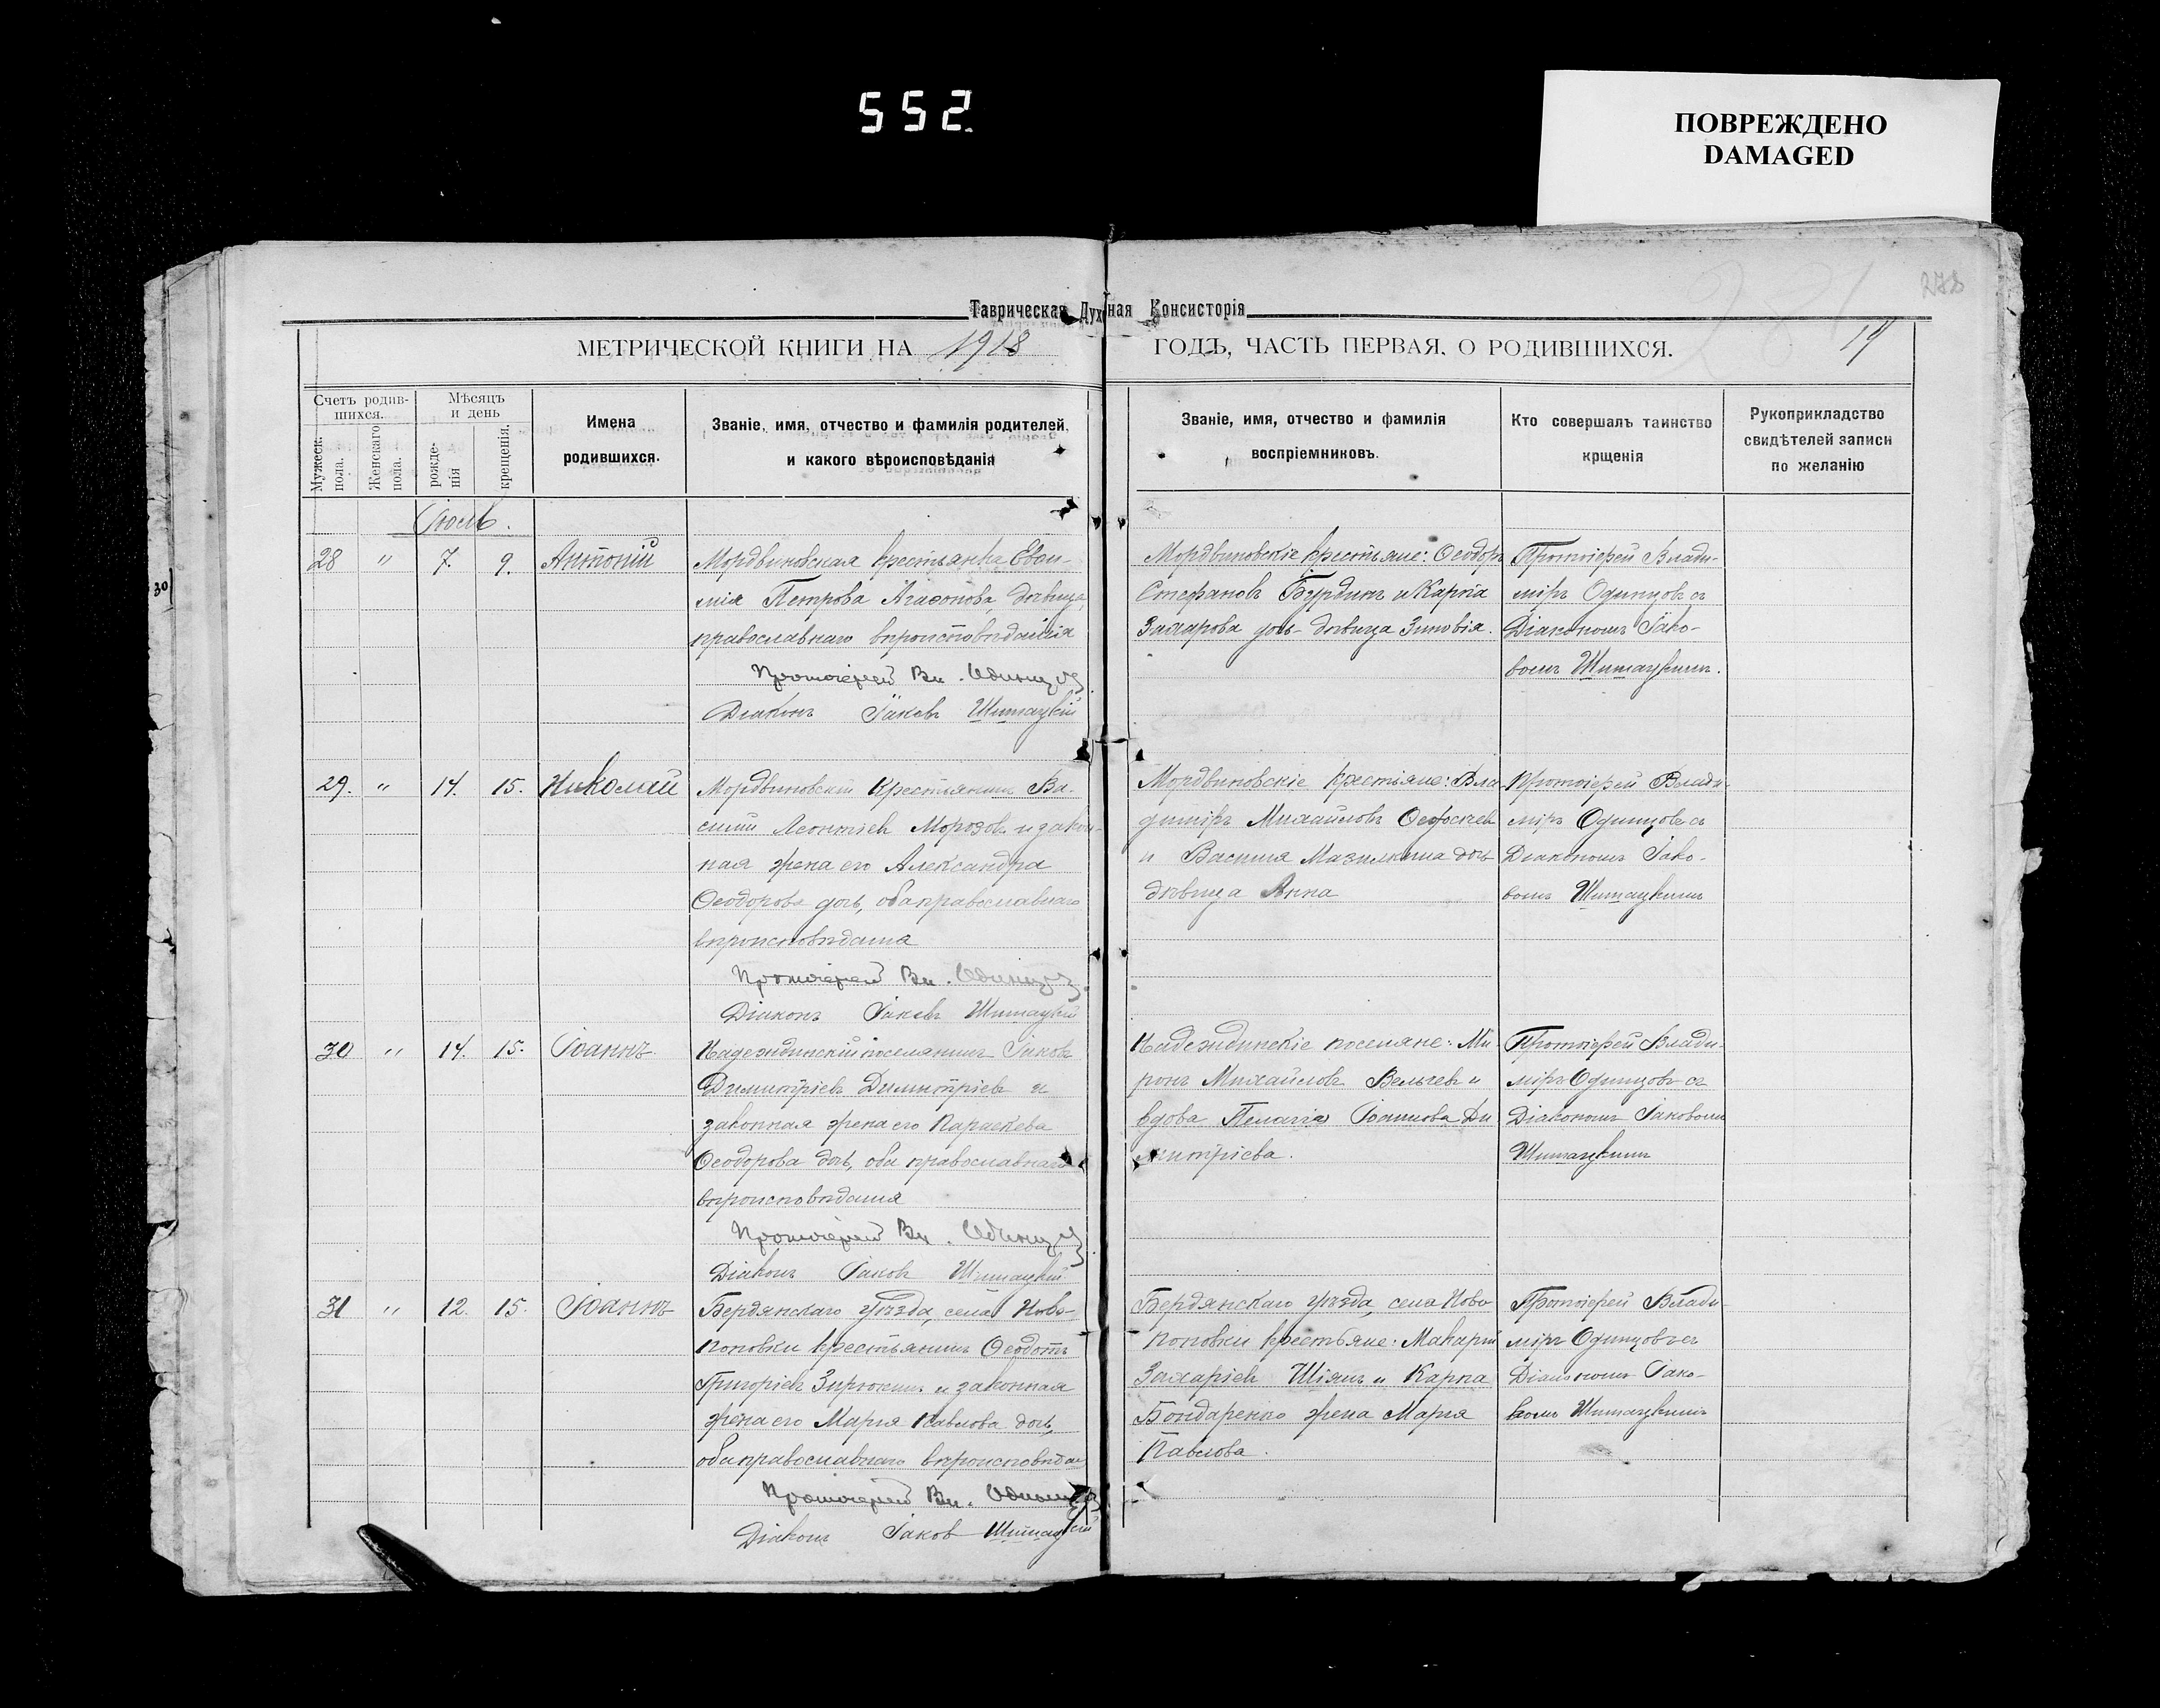 552
ПОВРЕЖДЕНО
DAMAGED
Таврическая Духовная Консисторія
278
МЕТРИЧЕСКОЙ КНИГИ НА 1918 ГОДЪ, ЧАСТЬ ПЕРВАЯ, О РОДИВШИХСЯ.
19
Счетъ родив-
шихся.
Мужеск. пола.
Женскаго пола.
Мѣсяцъ
и день
рожде-
нія
крещенія.
Имена
родившихся.
Званіе, имя, отчество и фамилія родителей,
и какого вѣроисповѣданія
Званіе, имя, отчество и фамилія
воспріемниковъ.
Кто совершалъ таинство
крщенія
Рукоприкладство
свидѣтелей записи
по желанію
30
Іюль.
28 " 7. 9. Антоній
Мордвиновская крестьянка Евѳи-
мія Петрова Агаѳонова, дѣвица,
православнаго вѣроисповѣданія
Протоіерей Вл. Одинцовъ
Діаконъ Іаковъ Шитацкій
Мордвиновскіе крестьяне: Ѳеодоръ
Стефановъ Бурдинъ и Карпа
Захарова дочь дѣвица Зиновія.
Протоіерей Влади-
міръ Одинцовъ съ
Діакономъ Іако-
вомъ Шитацкимъ.
29. " 14. 15. Николай
Мордвиновскій крестьянинъ Ва-
силій Леонтіевъ Морозовъ и закон-
ная жена его Александра
Ѳеодорова дочь, оба православнаго
вѣроисповѣданія
Протоіерей Вл. Одинцовъ
Діаконъ Іаковъ Шитацкій
Мордвиновскіе крестьяне: Вла-
диміръ Михайловъ
и Василія дочь
дѣвица Анна
Протоіерей Влади-
міръ Одинцовъ съ
Діакономъ Іако-
вомъ Шитацкимъ
30 " 14. 15. Іоаннъ
Надеждинскій поселянинъ Іаковъ
Димитріевъ Димитріевъ и
законная жена его Параскева
Ѳеодорова дочь, оба православнаго
вѣроисповѣданія
Протоіерей Вл. Одинцовъ
Діаконъ Іаковъ Шитацкій
Надеждинскіе поселяне: Ми
ронъ Михайловъ Вельчевъ и
вдова Пелагія Іоаннова Ди
митріева.
Протоіерей Влади-
міръ Одинцовъ съ
Діакономъ Іаковомъ
Шитацкимъ
31 " 12. 15. Іоаннъ
Бердянскаго уѣзда, села Ново-
поповки крестьянинъ Ѳеодотъ
Григоріевъ Зирюкинъ и законная
жена его Марія Павлова дочь,
оба православнаго вѣроисповѣдан
Протоіерей Вл. Одинцовъ
Діаконъ Іаковъ Шитацкій
Бердянскаго уѣзда, села Ново
поповки крестьяне: Макарій
Захаріевъ Шіянъ и Карпа
Бондаренко жена Марія
Павлова.
Протоіерей Влади-
міръ Одинцовъ съ
Діакономъ Іако-
вомъ Шитацкимъ